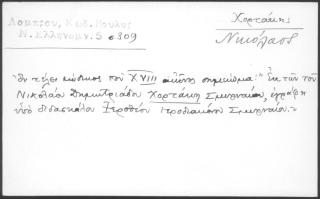 Λάμπρου, Κώδ. Βουλῆς
Ν. Ἑλληνομν. 5 σ 309
Χορτάκης
Νικόλαος
Ἐν τέλει κώδικος τοῦ XVIII αἰῶνος σημείωμα: "Ἐκ τῶν τοῦ
Νικολάου Δημητριάδου Χορτάκη Σμυρναίου, ἐγράφη
ὑπὸ διδασκάλου Ἱεροθέου Ἱεροδιακόνου Σμυρναίου."